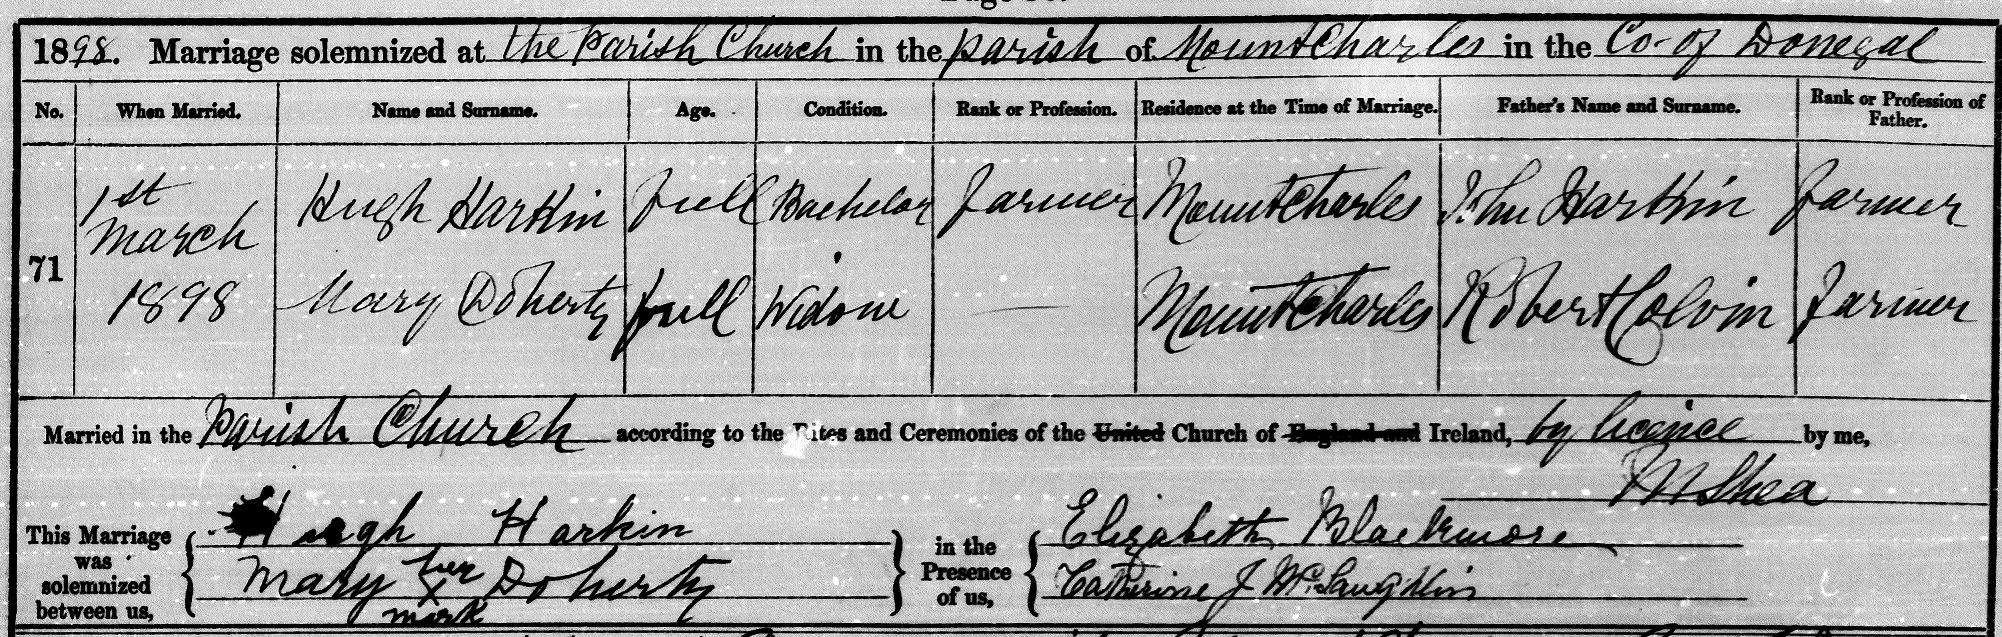 1898. Marriage solemnized at the Parish Church in the parish of MountCharles in the Co- of Donegal
No. When Married. Name and Surname. Age. Condition. Rank or Profession. Residence at the Time of Marriage. Father's Name and Surname. Rank or Profession of Father.
71
1st March 1898
Hugh Harkin full Bachelor farmer MountCharles John Harkin farmer
Mary Doherty full Widow — MountCharles Robert Colvin farmer
Married in the Parish Church according to the Rites and Ceremonies of the United Church of England and Ireland, by licence by me,
M Shea
This Marriage was solemnized between us,
Hugh Harkin
Mary her X mark Doherty
in the Presence of us,
Elizabeth Blackmore
Catherine J McLaughlin